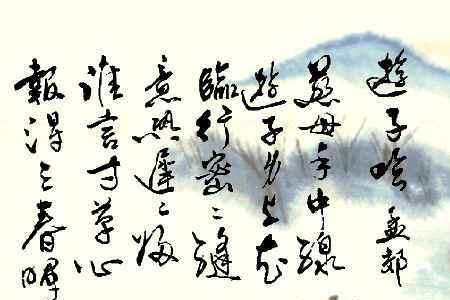 遊子吟 孟郊
慈母手中線
遊子身上衣
臨行密〻縫
意恐遲〻歸
誰言寸草心
報得三春暉